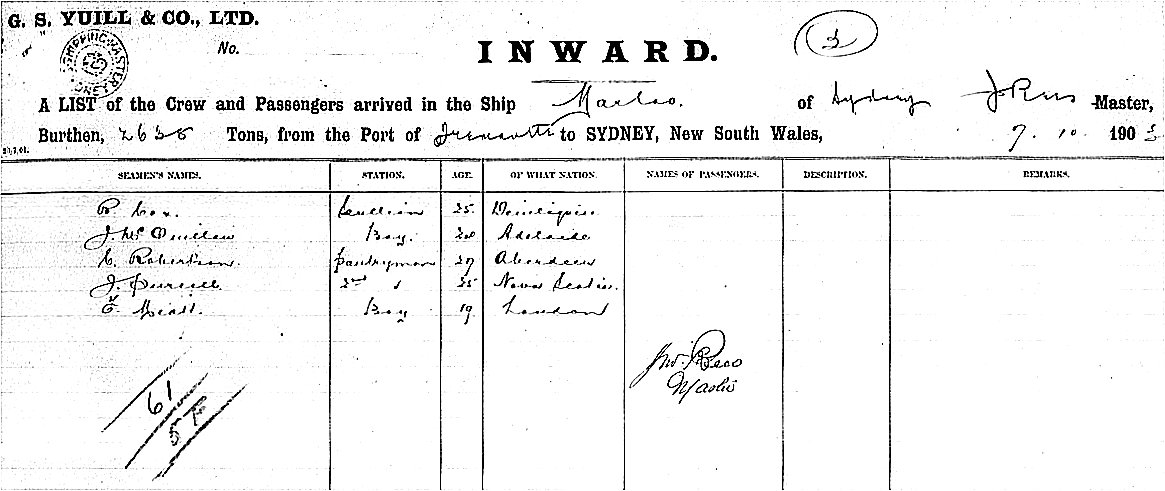 G. S. YUILL & CO., LTD.
No.
INWARD.
SHIPPING MASTER
A LIST of the Crew and Passengers arrived in the Ship Marloo. of Sydney J Rees Master,
Burthen, 2628 Tons, from the Port of Fremantle to SYDNEY, New South Wales, 7. 10. 1903
SEAMEN'S NAMES. STATION. AGE. OF WHAT NATION. NAMES OF PASSENGERS. DESCRIPTION. REMARKS.
Cox. Scullion 25. Deniliquin
J. Mc Boy. Adelaide
C. Robertson. pantryman 27 Aberdeen
J. 2nd 25 Nova Scotia.
Boy 19 London
Jno. Rees
Master
61